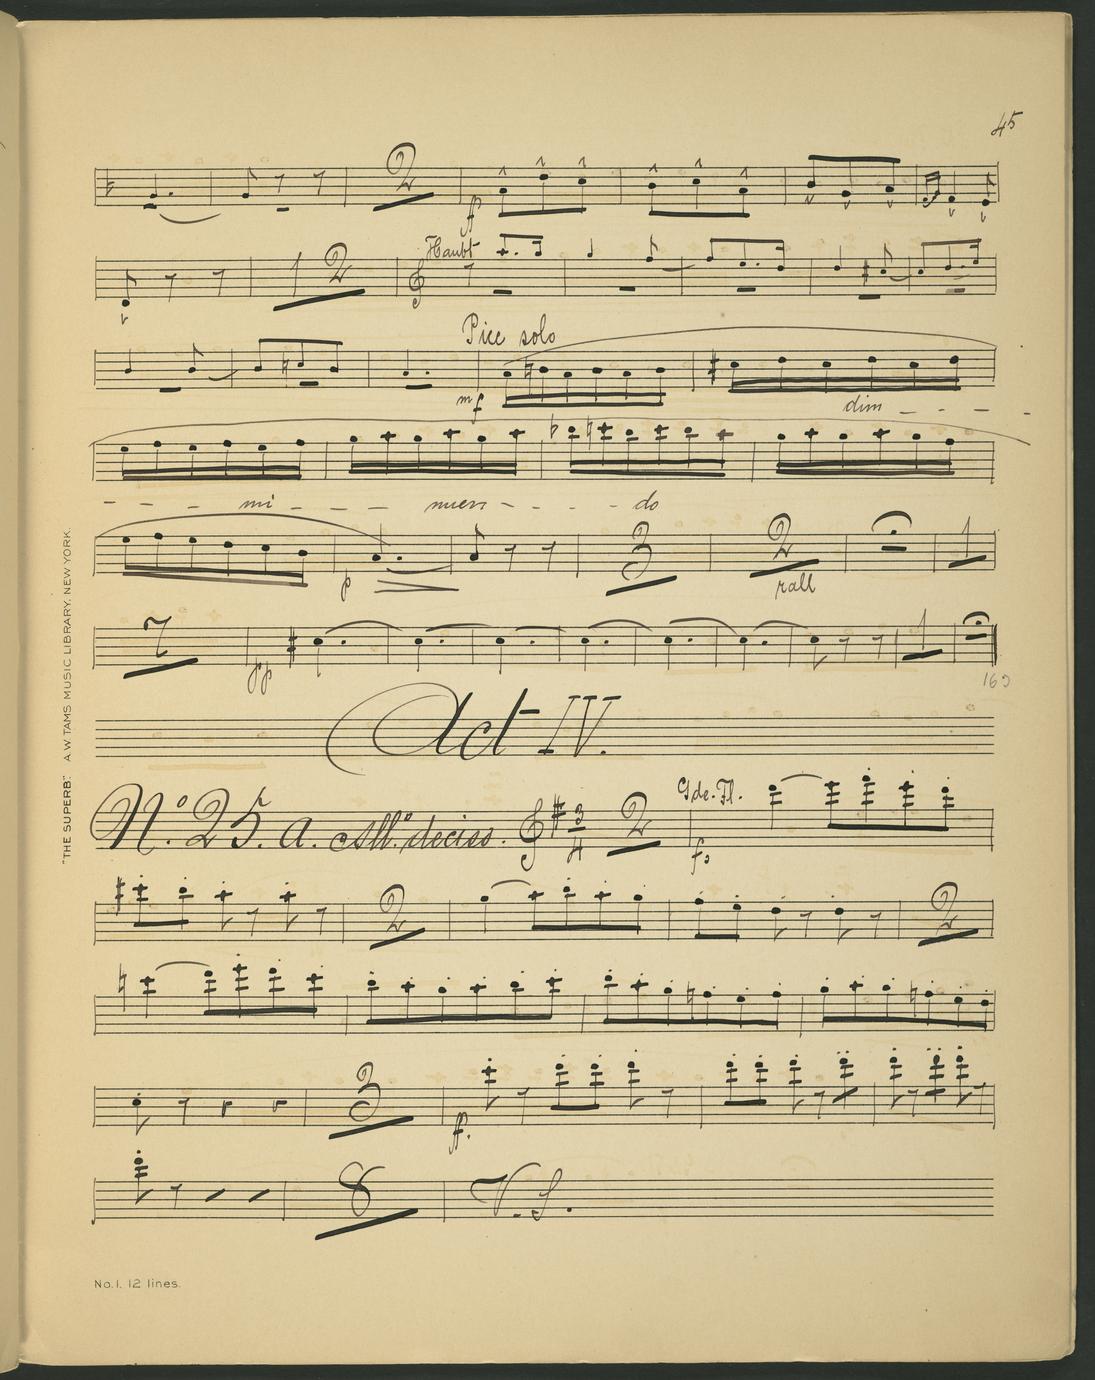 45
2
ff
Haubt
1 2
Picc solo
mf
dim - - - -
- - - mi - - - nuen - - - - do
3 2 1
p
rall
7 1
pp
Act IV.
No. 25. a. Allo. deciso. 3/4 2 Gde. Fl.
f
2 2
3
ff.
8 V. S.
"THE SUPERB". A.W. TAMS MUSIC LIBRARY, NEW YORK
No. 1. 12 lines.